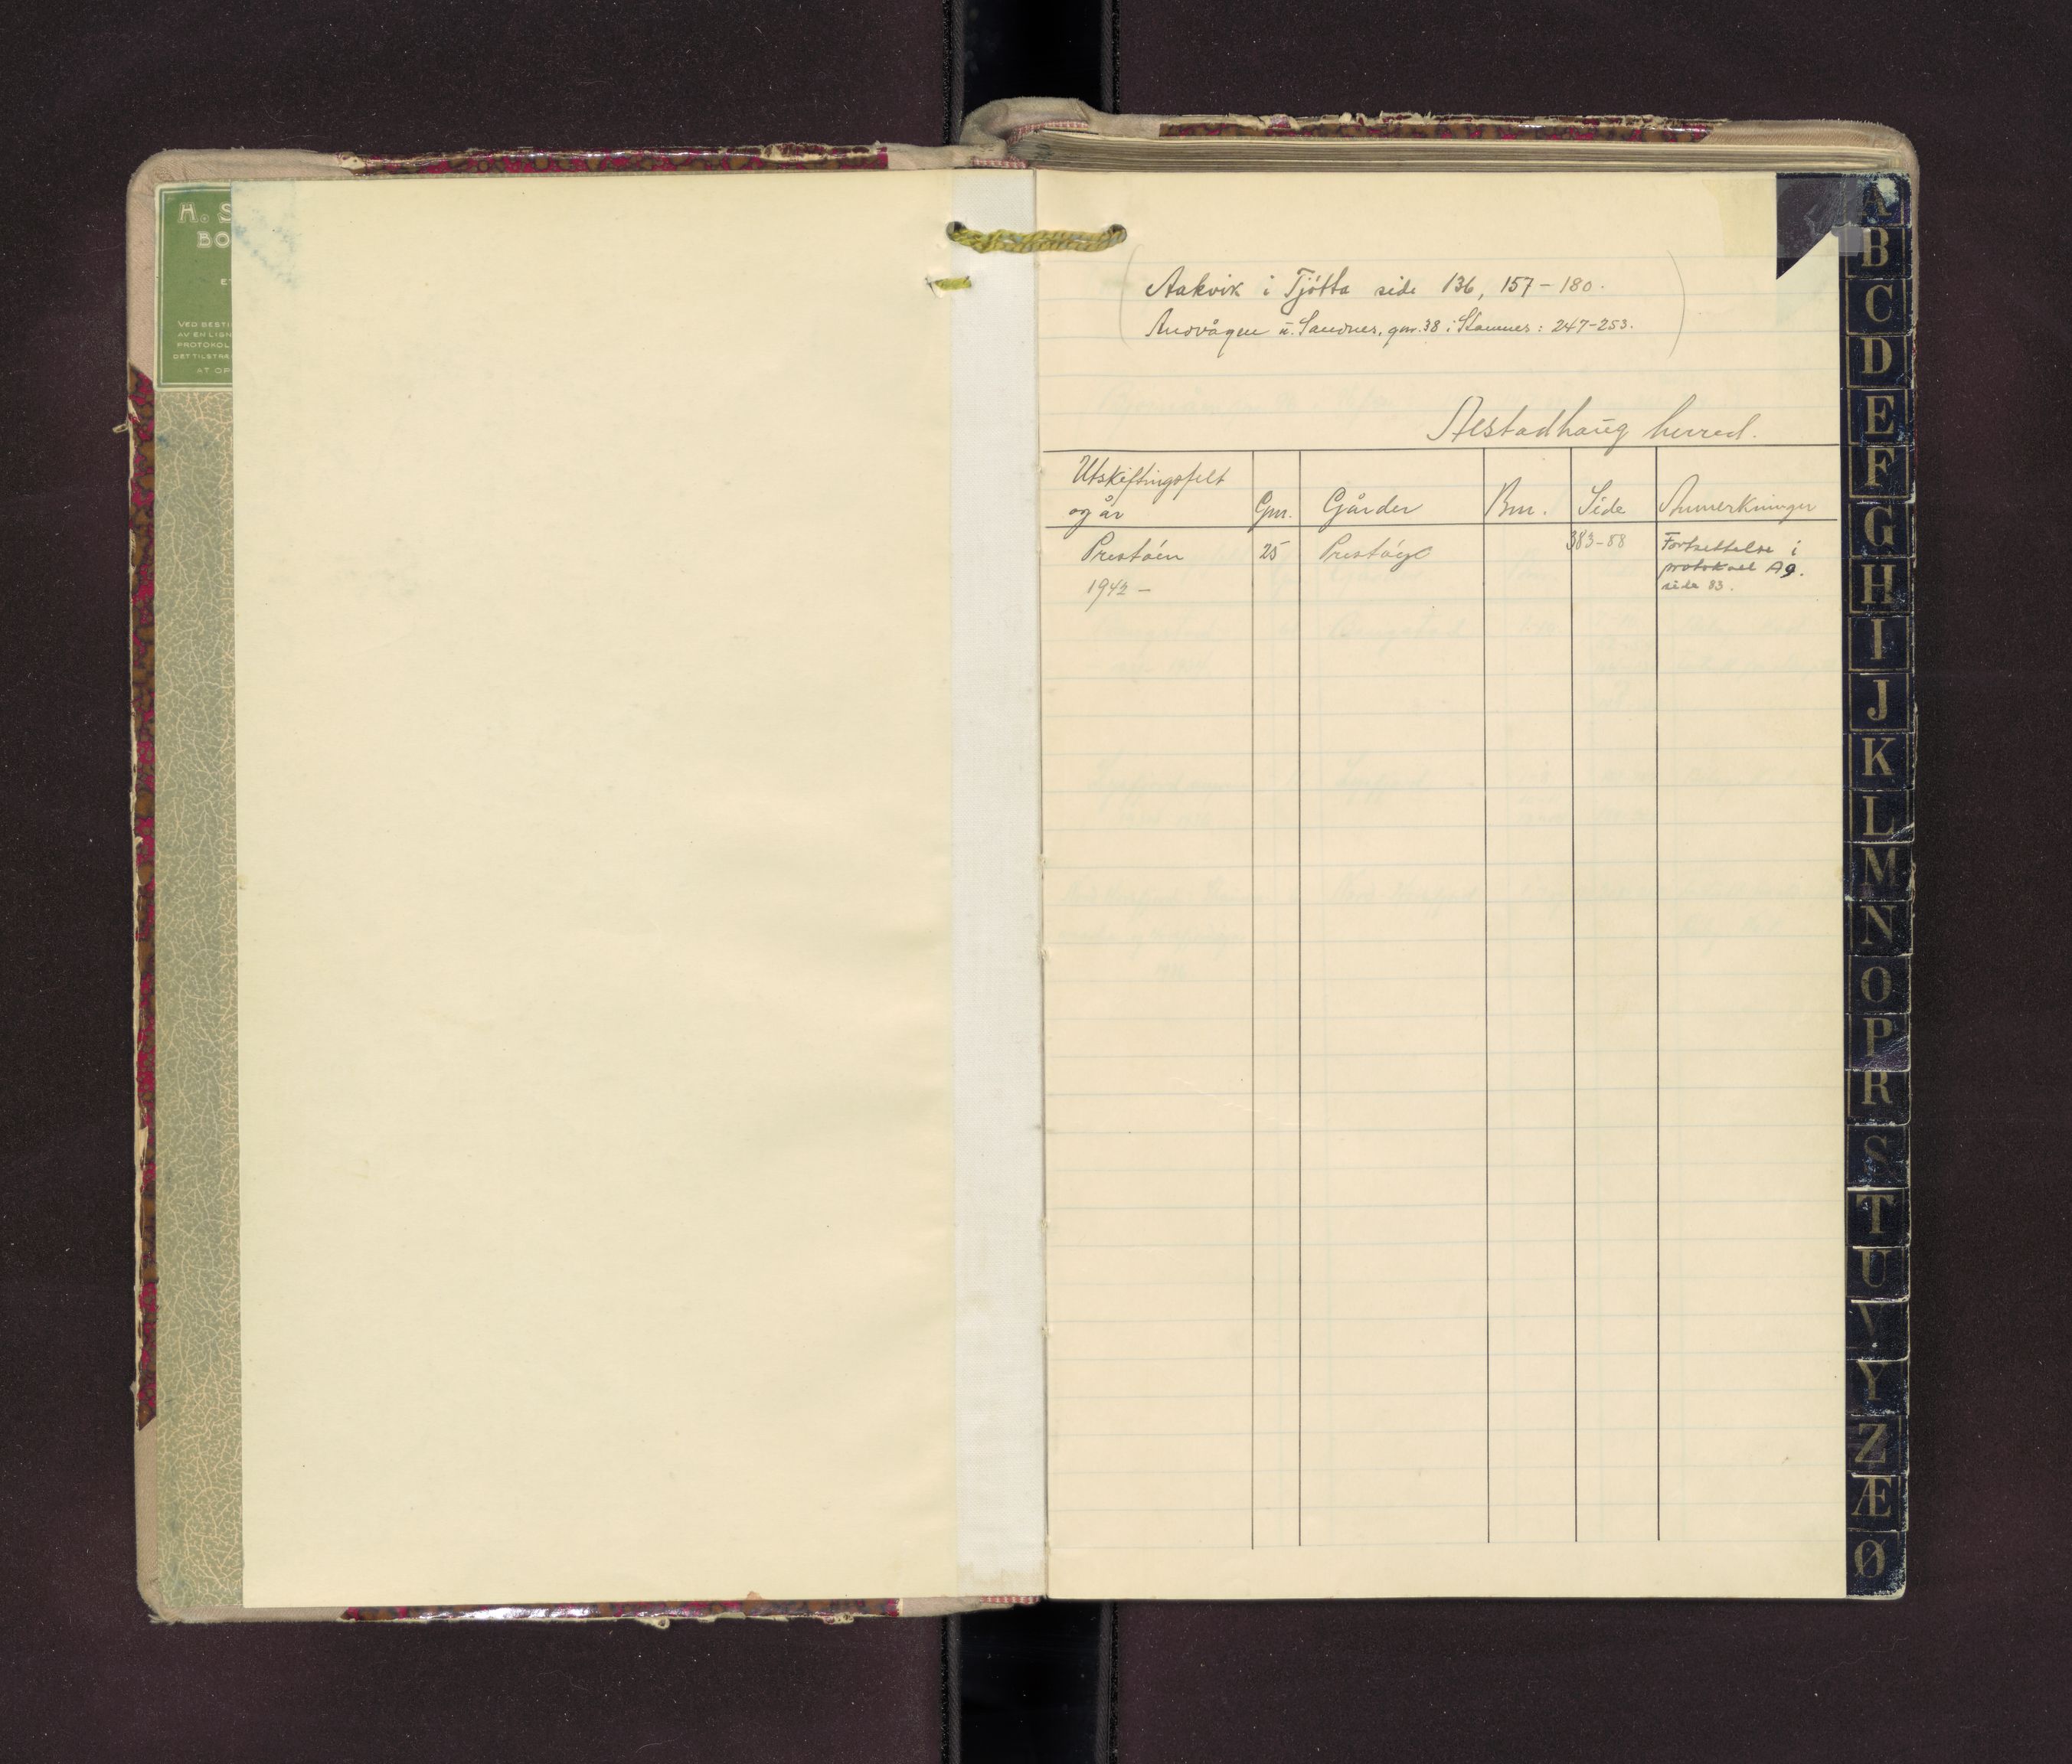 H. S
BO
ET
VED BESTI
AV EN LIGN
PROTOKOL
DET TILSTRÆ
AT OP
Aakvik i Tjötta side 136, 157-180.
Andvågen u. Sandnes, gnr. 38 i Stamnes: 247-253.
Alstadhaug herred.
Utskiftingsfelt
og år
Gnr.
Gårder
Bnr.
Side
Anmerkninger
Prestöen
25
Prestöya
383-88
Fortsettelse i
protokoll A9.
side 83.
1942 -
A
B
C
D
E
F
G
H
I
J
K
L
M
N
O
P
R
S
T
U
V
Y
Z
Æ
Ø